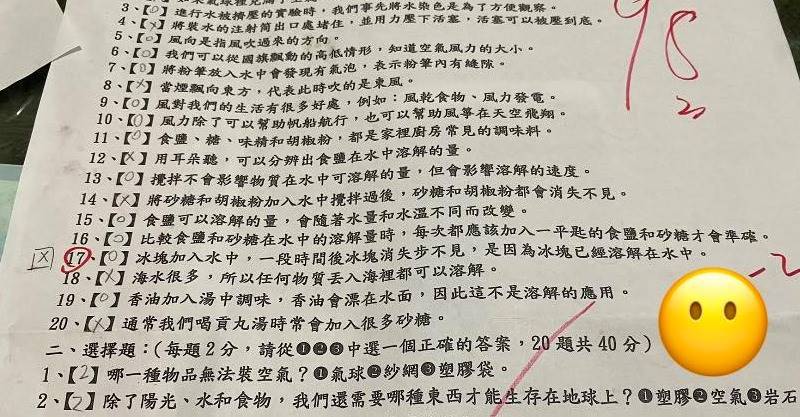 3、【O】進行水被擠壓的實驗時，我們事先將水染色是為了方便觀察。
4、【X】將裝水的注射筒出口處堵住，並用力壓下活塞，活塞可以被壓到底。
5、【O】風向是指風吹過來的方向。
6、【O】我們可以從國旗飄動的高低情形，知道空氣風力的大小。
7、【O】將粉筆放入水中會發現有氣泡，表示粉筆內有縫隙。
8、【X】當煙飄向東方，代表此時吹的是東風。
9、【O】風對我們的生活有很多好處，例如：風乾食物、風力發電。
10、【O】風力除了可以幫助帆船航行，也可以幫助風箏在天空飛翔。
11、【O】食鹽、糖、味精和胡椒粉，都是家裡廚房常見的調味料。
12、【X】用耳朵聽，可以分辨出食鹽在水中溶解的量。
13、【O】攪拌不會影響物質在水中可溶解的量，但會影響溶解的速度。
14、【X】將砂糖和胡椒粉加入水中攪拌過後，砂糖和胡椒粉都會消失不見。
15、【O】食鹽可以溶解的量，會隨著水量和水溫不同而改變。
16、【O】比較食鹽和砂糖在水中的溶解量時，每次都應該加入一平匙的食鹽和砂糖才會準確。
X 17、【O】冰塊加入水中，一段時間後冰塊消失步不見，是因為冰塊已經溶解在水中。
18、【X】海水很多，所以任何物質丟入海裡都可以溶解。
19、【O】香油加入湯中調味，香油會漂在水面，因此這不是溶解的應用。
20、【X】通常我們喝貢丸湯時常會加入很多砂糖。
二、選擇題：（每題2分，請從❶❷❸中選一個正確的答案，20題共40分）
1、【2】哪一種物品無法裝空氣？❶氣球❷紗網❸塑膠袋。
2、【2】除了陽光、水和食物，我們還需要哪種東西才能生存在地球上？❶塑膠❷空氣❸岩石
98
-2